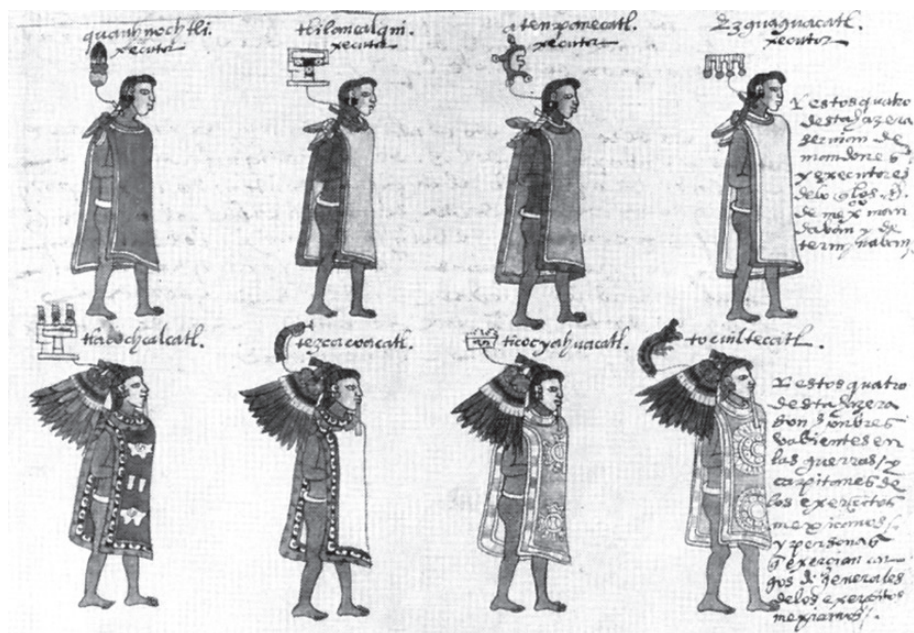 quauhnochtli.
xecutor
tlilancalqui.
xecutor
atenpanecatl.
xecutor
Ezguaguacatl.
xecutor
Y estos quatro
desta hazera
servian de
mandones
y executores
de lo q̃ los s.
de mexco man
davan y de
terminavan.
tlacochcalcatl.
tezcacoacatl.
ticocyahuacatl.
tocuiltecatl.
Y estos quatro
desta hazera
son honbres
valientes en
las guerras / y
capitanes de
los exerçitos
mexicanos /
y personas
q̃ exerçian car
gos de generales
de los exerçitos
mexicanos /.